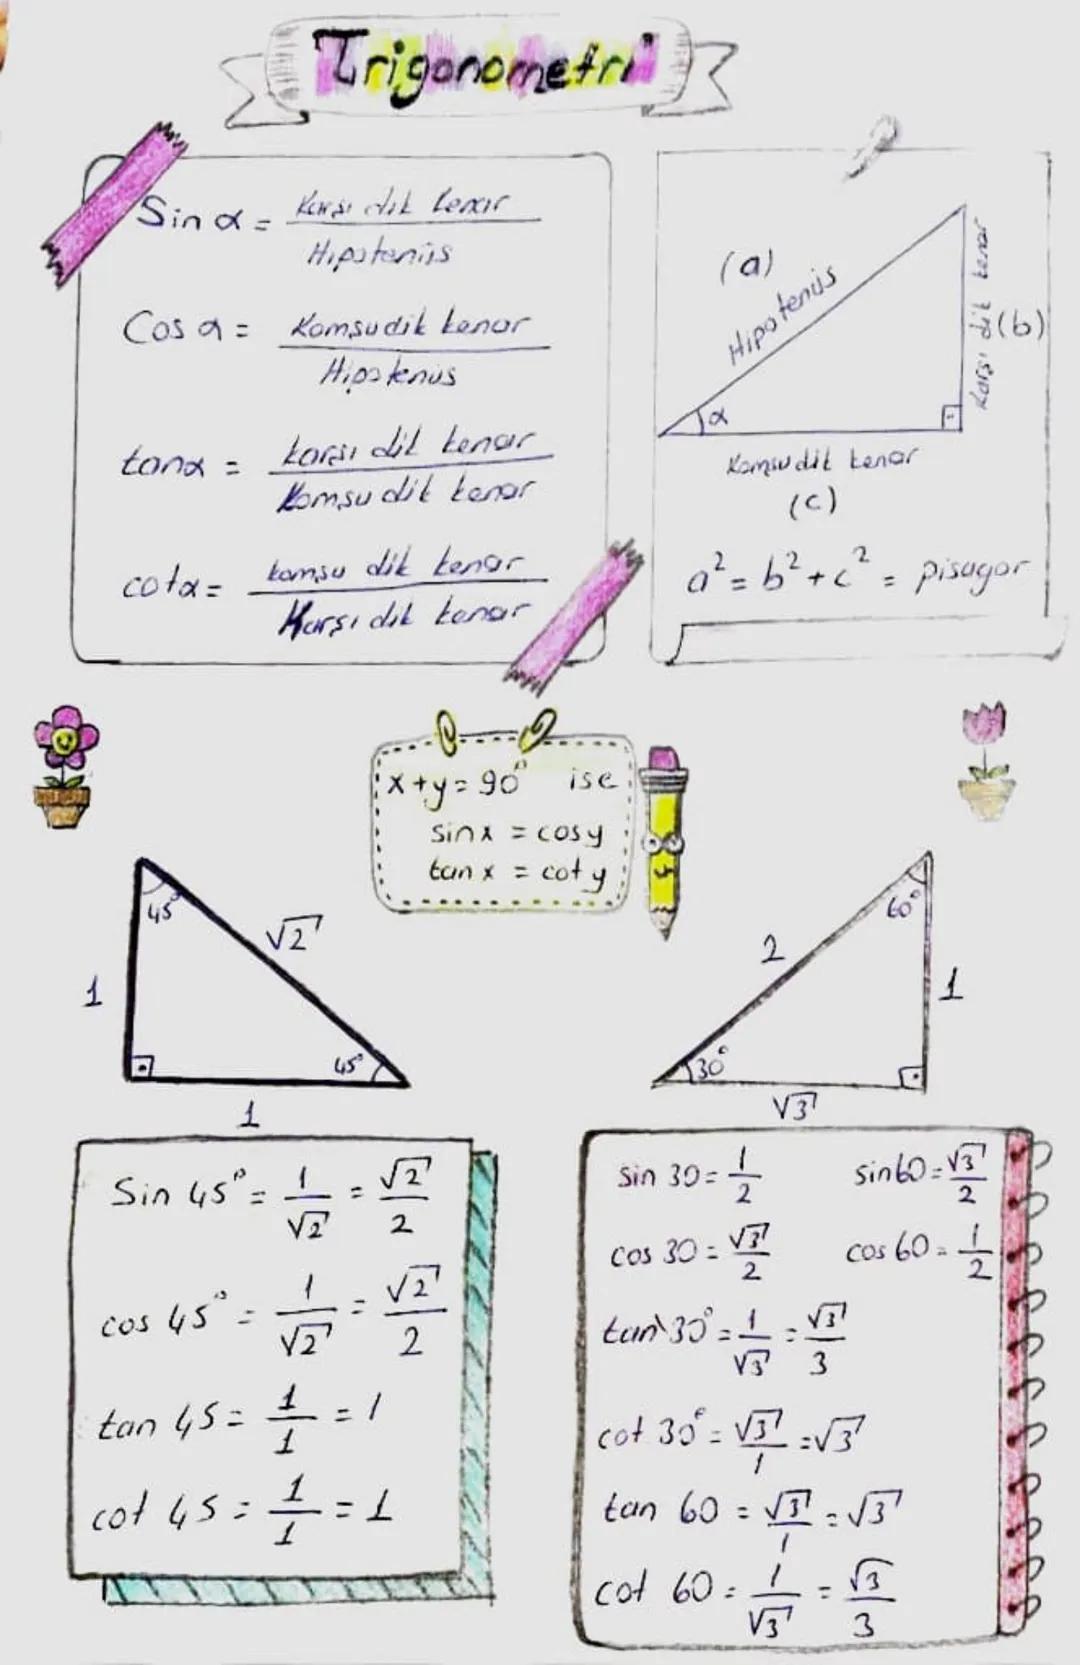 Trigonometri
Sin α = Karşı dik kenar / Hipotenüs
Cos α = Komşu dik kenar / Hipotenüs
tan α = karşı dik kenar / Komşu dik kenar
cot α = komşu dik kenar / Karşı dik kenar
(a)
Hipotenüs
Karşı dik kenar
(b)
α
Komşu dik kenar
(c)
a² = b² + c² = pisagor
x + y = 90° ise
sin x = cos y
tan x = cot y
45°
√2
1
45°
1
60°
2
1
30°
√3
Sin 45° = 1/√2 = √2/2
cos 45° = 1/√2 = √2/2
tan 45 = 1/1 = 1
cot 45 = 1/1 = 1
sin 30 = 1/2 sin 60 = √3/2
cos 30 = √3/2 cos 60 = 1/2
tan 30° = 1/√3 = √3/3
cot 30° = √3/1 = √3
tan 60 = √3/1 = √3
cot 60 = 1/√3 = √3/3